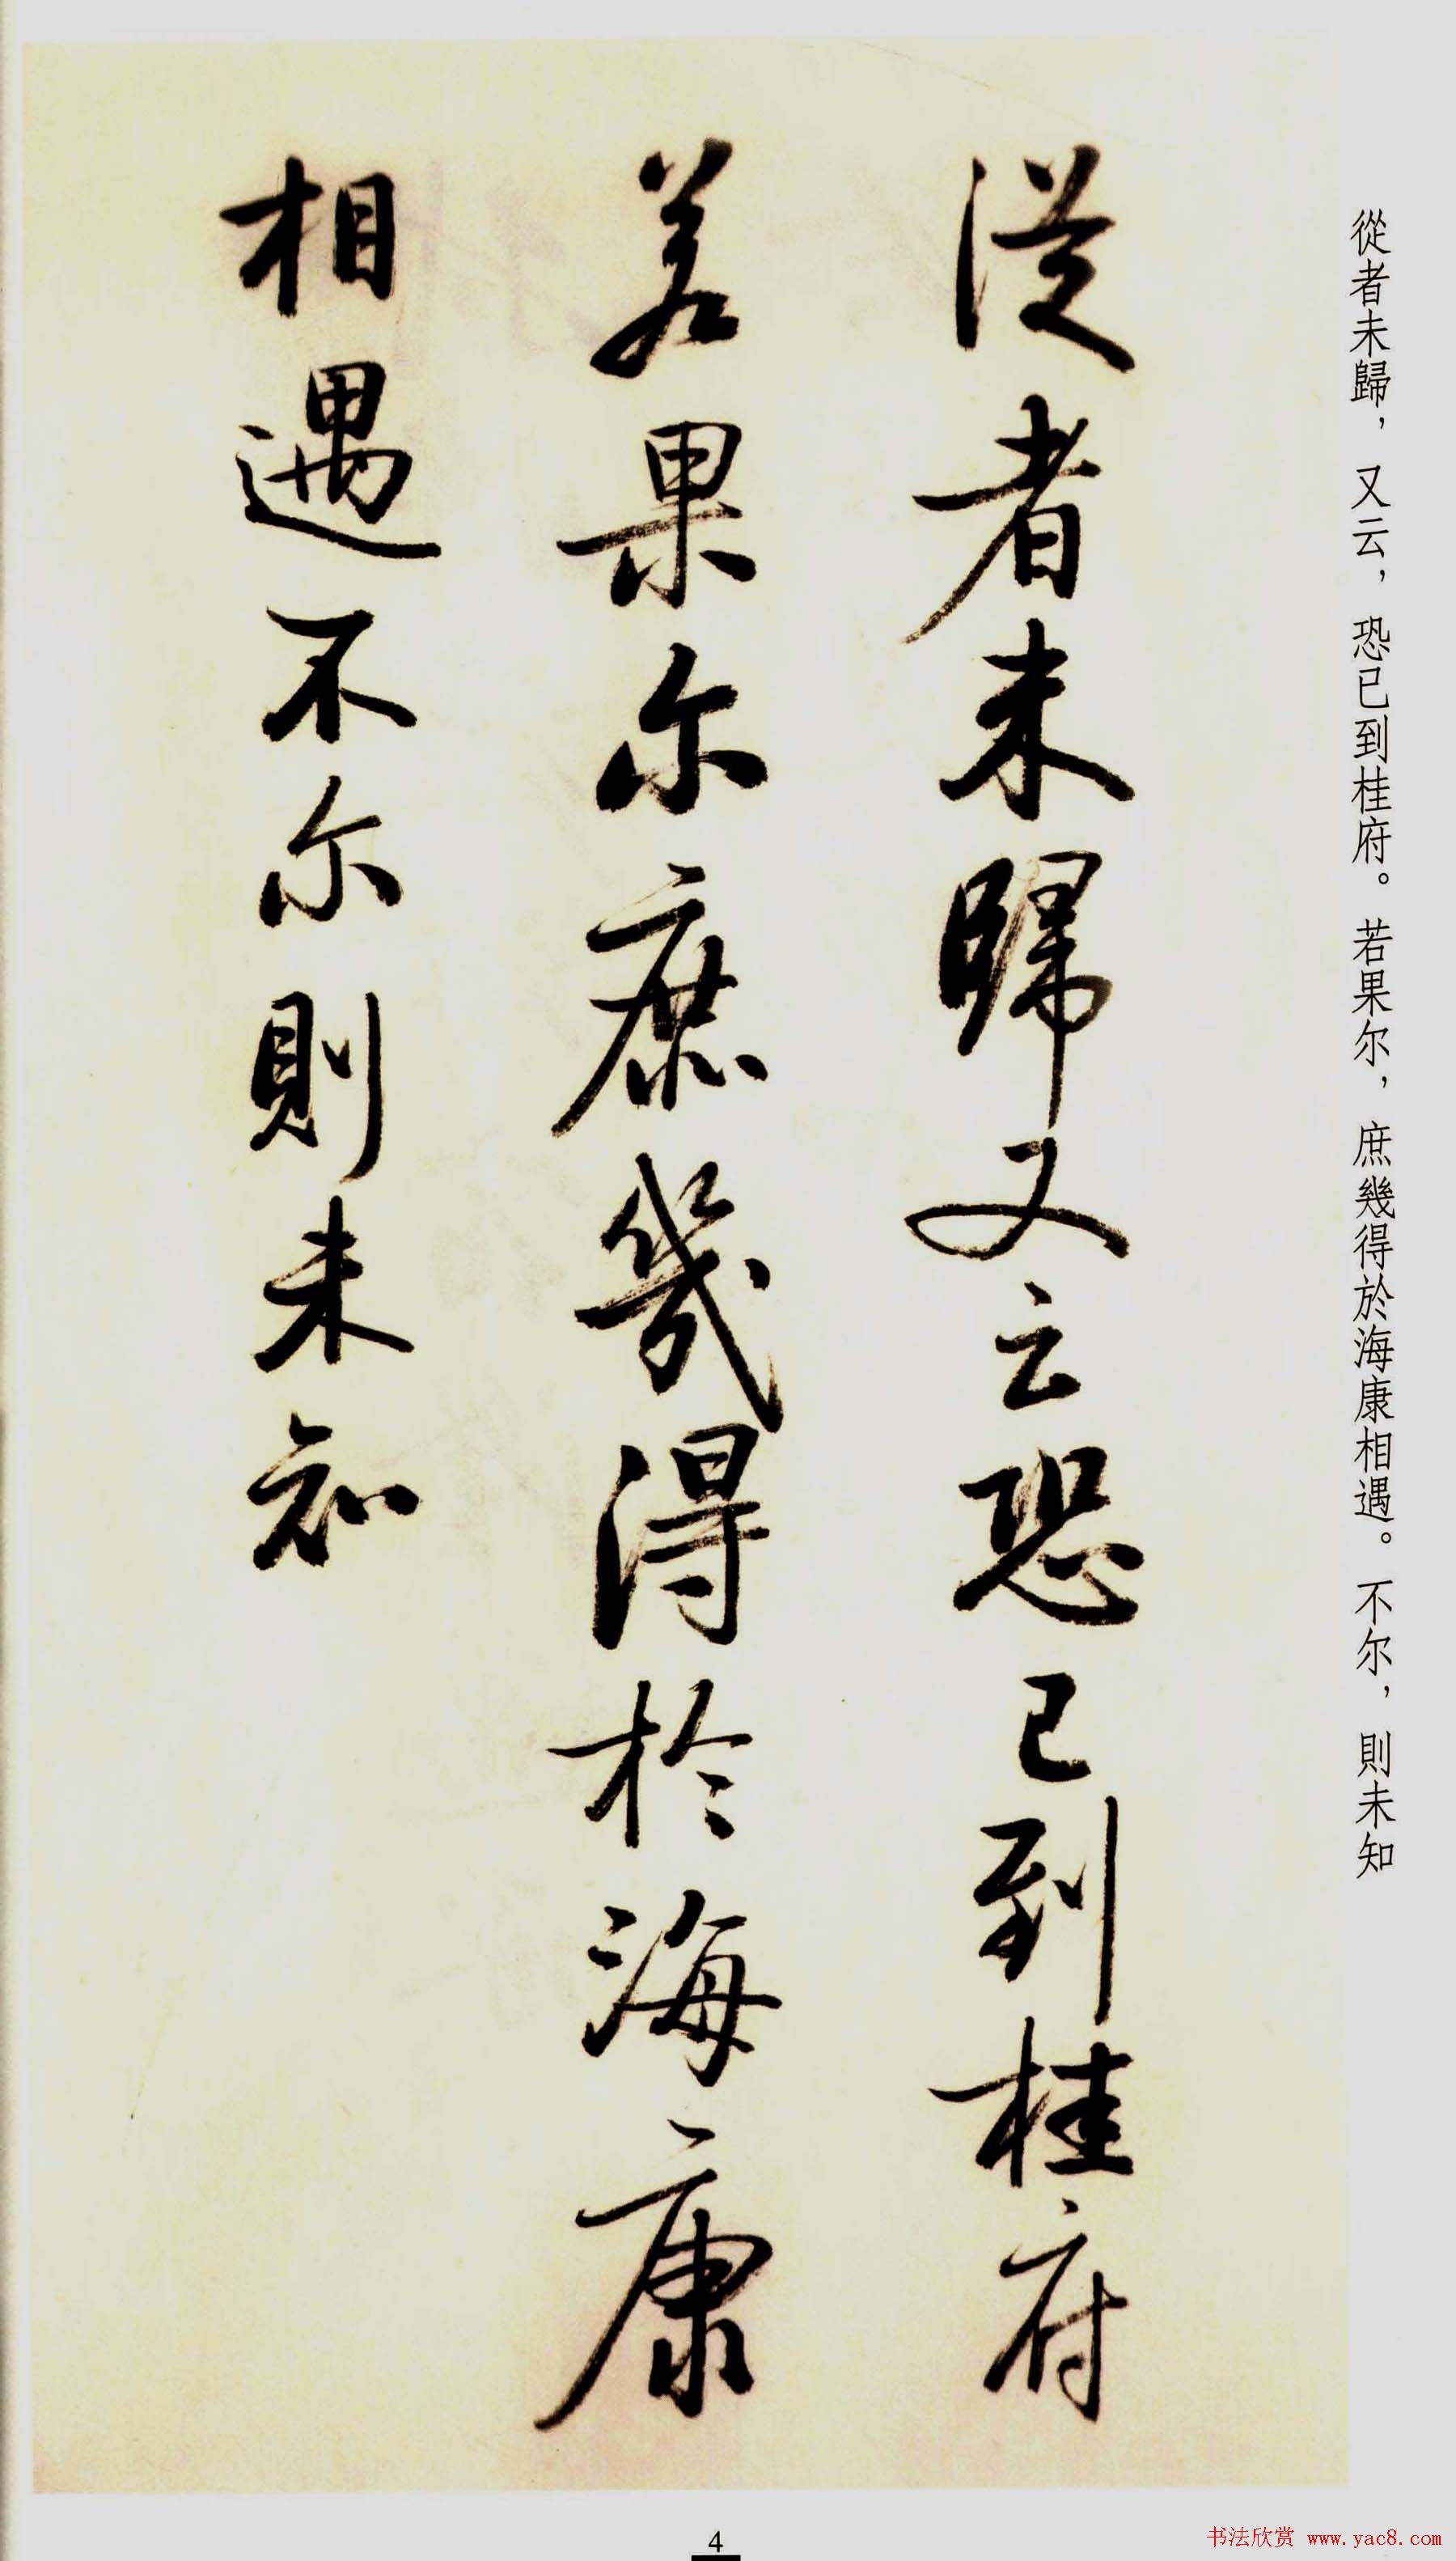 從者未歸，又云，恐已到桂府。若果尔，庶幾得於海康相遇。不尔，則未知
從者未歸又云恐已到桂府
若果尔庶幾得於海康
相遇不尔則未知
4
书法欣赏 www.yac8.com